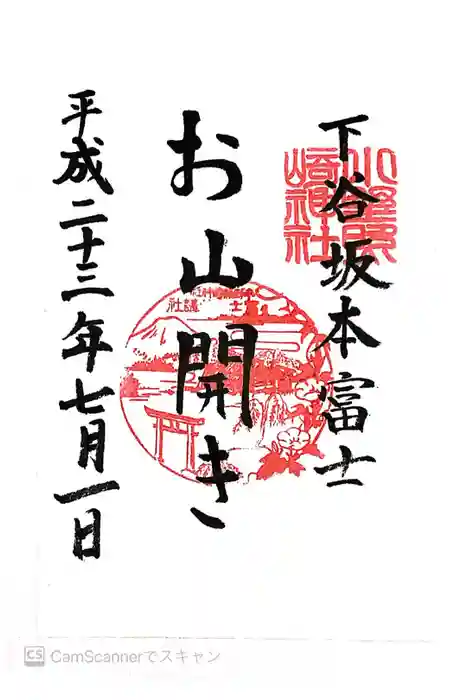 下谷坂本富士
お山開き
平成二十三年七月一日
小野照
崎神社
CS CamScannerでスキャン